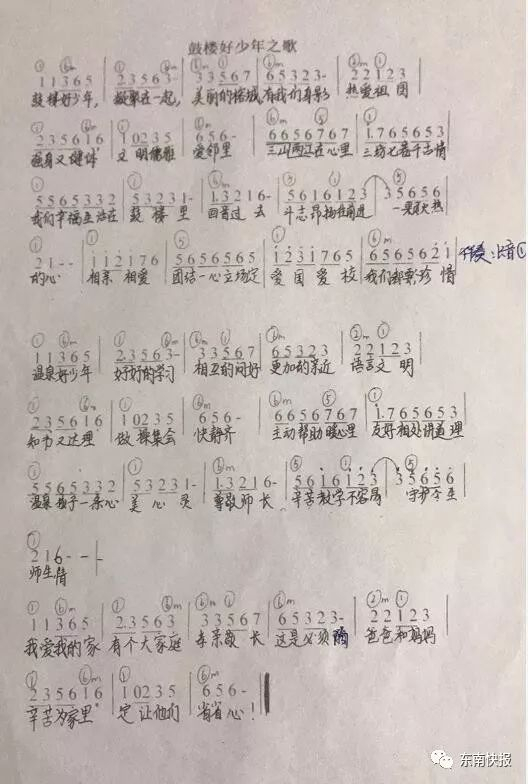 鼓楼好少年之歌
① ⑥m ① ⑥m ⑥m ① ⑥m ②m ①
1 1 3 6 5 | 2 3 5 6 3- | 3 3 5 6 7 | 6 5 3 2 3- | 2 2 1 2 3
鼓楼好少年, 凝聚在一起, 美丽的榕城, 有我们身影 热爱祖国
2 3 5 6 1 6 | 1 0 2 3 5 | 6 5 6- | 6 6 5 6 7 6 7 | 1. 7 6 5 6 5 3
强身又健体 文明儒雅 爱邻里 三山两江在心里 三坊七巷千古情
5 5 6 5 3 3 2 | 5 3 2 3 1- | 1. 3 2 1 6- | 5 6 1 6 1 2 3 | 3 5 6 5 6
我们幸福生活在 鼓楼里 回首过去 斗志昂扬在前进 一颗火热
2 1 - - | 1 1 2 1 7 6 | 5 6 5 6 5 6 5 | 1 2 3 1 7 6 5 | 6 5 6 5 6 2 1
的心 相亲相爱 团结一心立场定 爱国爱校 我们都要珍惜
1 1 3 6 5 | 2 3 5 6 3- | 3 3 5 6 7 | 6 5 3 2 3 | 2 2 1 2 3
温泉好少年 好好的学习 相互的问好 更加的亲近 语言文明
2 3 5 6 1 6 | 1 0 2 3 5 | 6 5 6- | 6 6 5 6 7 6 7 | 1. 7 6 5 6 5 3
知书又达理 做操集会 快静齐 主动帮助暖心里 友好相处讲道理
5 5 6 5 3 3 2 | 5 3 2 3 1- | 1. 3 2 1 6- | 5 6 1 6 1 2 3 | 3 5 6 5 6
温泉孩子一条心 美心灵 尊敬师长 辛苦教学不容易 守护今生
2 1 6 - - |
师生情
1 1 3 6 5 | 2 3 5 6 3 | 3 3 5 6 7 | 6 5 3 2 3- | 2 2 1 2 3
我爱我的家 有个大家庭 孝亲敬长 这是必须 爸爸和妈妈
2 3 5 6 1 6 | 1 0 2 3 5 | 6 5 6-
辛苦为家里 定让他们 省省心!
东南快报